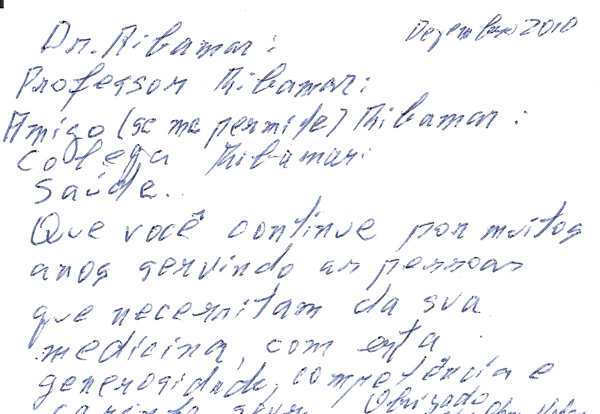 Dezembro 2010
Dr. Ribamar:
Professor Ribamar:
Amigo (se me permite) Ribamar:
Colega Ribamar:
Saúde.
Que você continue por muitos
anos servindo as pessoas
que necessitam da sua
medicina, com esta
generosidade, competência e
carinho seus. Obrigado